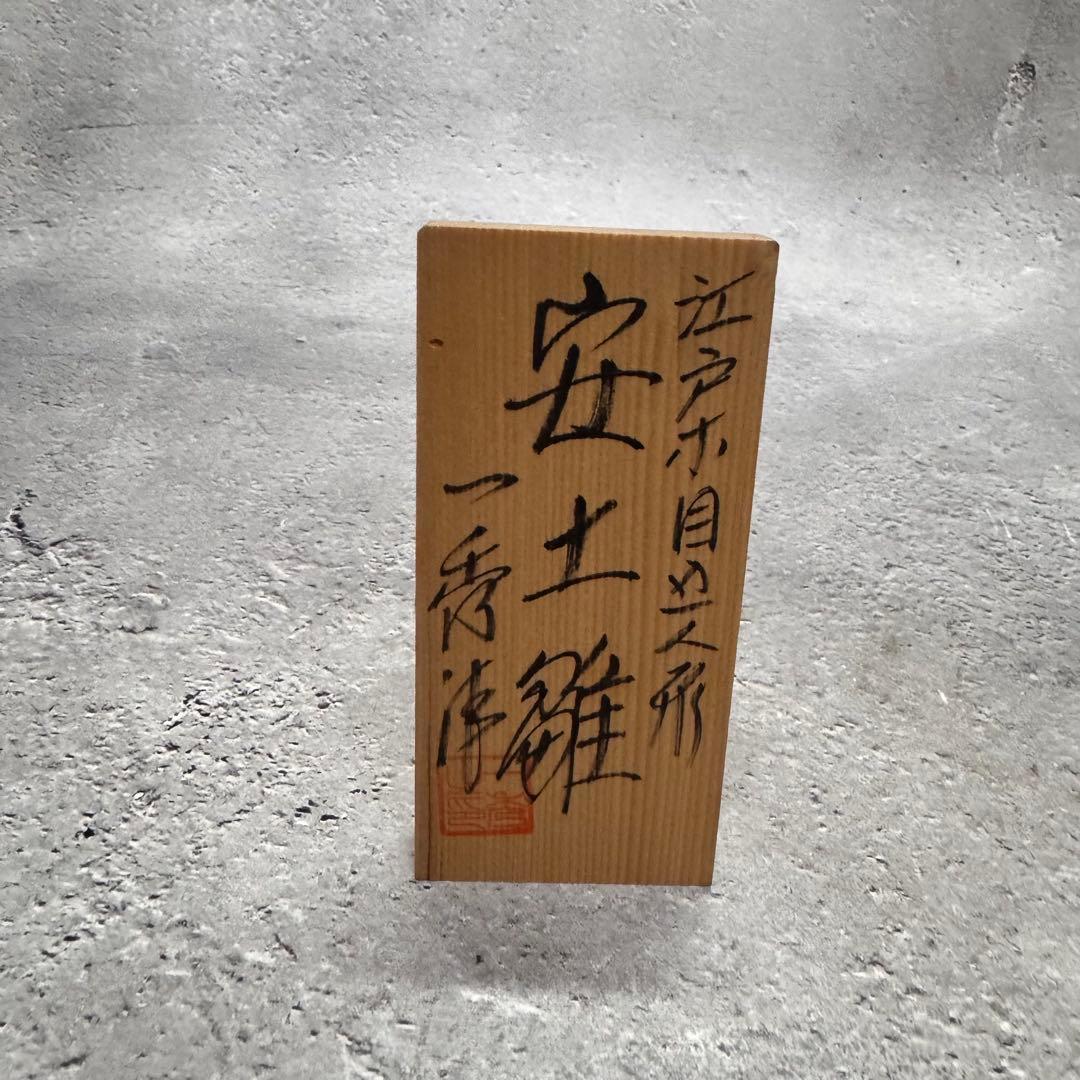 江戸木目込人形
安土雛
一秀作